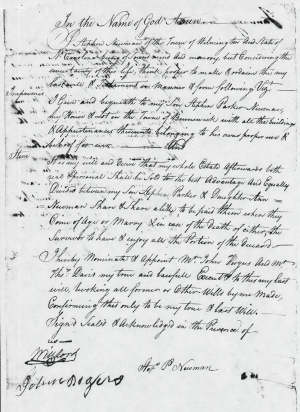 In the Name of God Amen
I Stephen Newman of the Town of Wilmington And State of
No Carolina of sound mind and memory, but Considering the
uncertainty of this life, think proper to make & ordain this my
last will & Testament in Manner & form following Viz.
I Give and bequeath to my Son Stephen Parker Newman
my House & Lot in the Town of Brunswick with all the buildings
& Appurtenances thereunto belonging to his own proper use &
behoof for
My will and desire that my whole Estate Afterwards both
real & personal Shall be Sold to the best Advantage And Equally
Divided between my Son Stephen Parker & Daughter Ann
Newman Share & Share alike to be paid them when they
Come of Age or Marry & in case of the death of either the
Survivor to have & enjoy all the Portion of the deceased.
I hereby Nominate & Appoint Mr John Fergus And Mr
Thos. Davis my true and lawfull Execut to this my last
will, revoking all former or Other Wills by me Made,
Confirming this only to be my true & last Will.
Signed Sealed & Acknowledged in the Presence of
us
John Rogers
Stepn. P. Newman